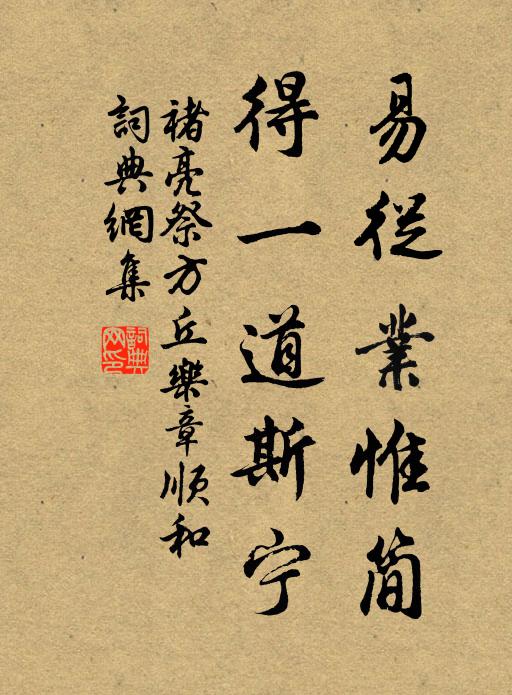 易從業惟简
得一道斯宁
褚亮祭方丘樂章順和
詞典網集
詞典网印